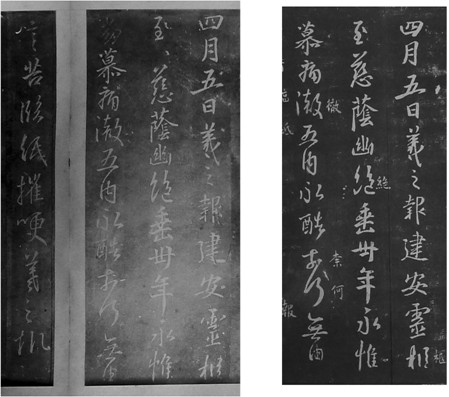 四月五日羲之報建安靈柩
至慈蔭幽絕垂卅年永惟
慕痛徹五內永酷奈何無由
言苦臨紙摧哽羲之報
四月五日羲之報建安靈柩
柩
至慈蔭幽絕垂卅年永惟
絕
奈何
慕痛徹五內永酷奈何無由
徹
報